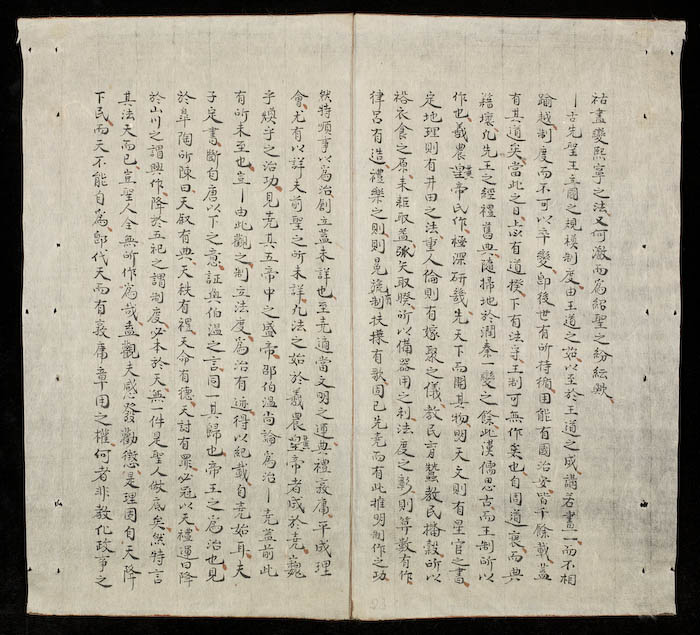 祐盡變熙寧之法又何激而為紹聖之紛紜歟
古先聖王立爲之規模制度由王道之始以至於王道之成講若畫一而不相
踰越制度而不可以卒變即後世有所待循固能有國治安皆千餘載盖
有其道矣當此之日上有道揆下有法守王制可無作矣也自周道衰而典
籍壞九先王之經禮舊典隨掃地於潤秦一變之餘此漢儒思古而王制所以
作也羲農皇帝民作極深研幾先天下而開其物明天文則有星官之書
定地理則有井田之法重人倫則有嫁娶之儀教民育蠶教民播穀所以
裕衣食之原耒耜取益弧矢取睽所以備器用之利法度之彰則算數有作
律呂有造禮樂之則則冕旒有制扶犂有歌固已先堯而有此推明制作之功
然特順事以為治創立盖未詳也至堯適當文明之運典禮敦庸平成理
會尤有以詳夫前聖之所未詳九法之始於羲農皇帝者成於堯巍
乎煥乎之治功見堯其五帝中之盛帝邵伯溫尚論為治堯盖前此
有所未至也豈由此觀之制立法度為治有迹得以紀載自堯始耳夫
子定書斷自唐以下之意証與伯溫之言同一其歸也帝王之為治也見
於臯陶所陳曰天叙有典天秩有禮天命有德天討有罪必冠以天禮運曰降
於山川之謂興作降於五祀之謂制度必本於天無一件是聖人做底矣然特言
其法天而已豈聖人全無所作為哉盍觀夫感發勸懲是理固自天降
下民而天不能自為即代天而有敦庸章用之權何者非教化政事之